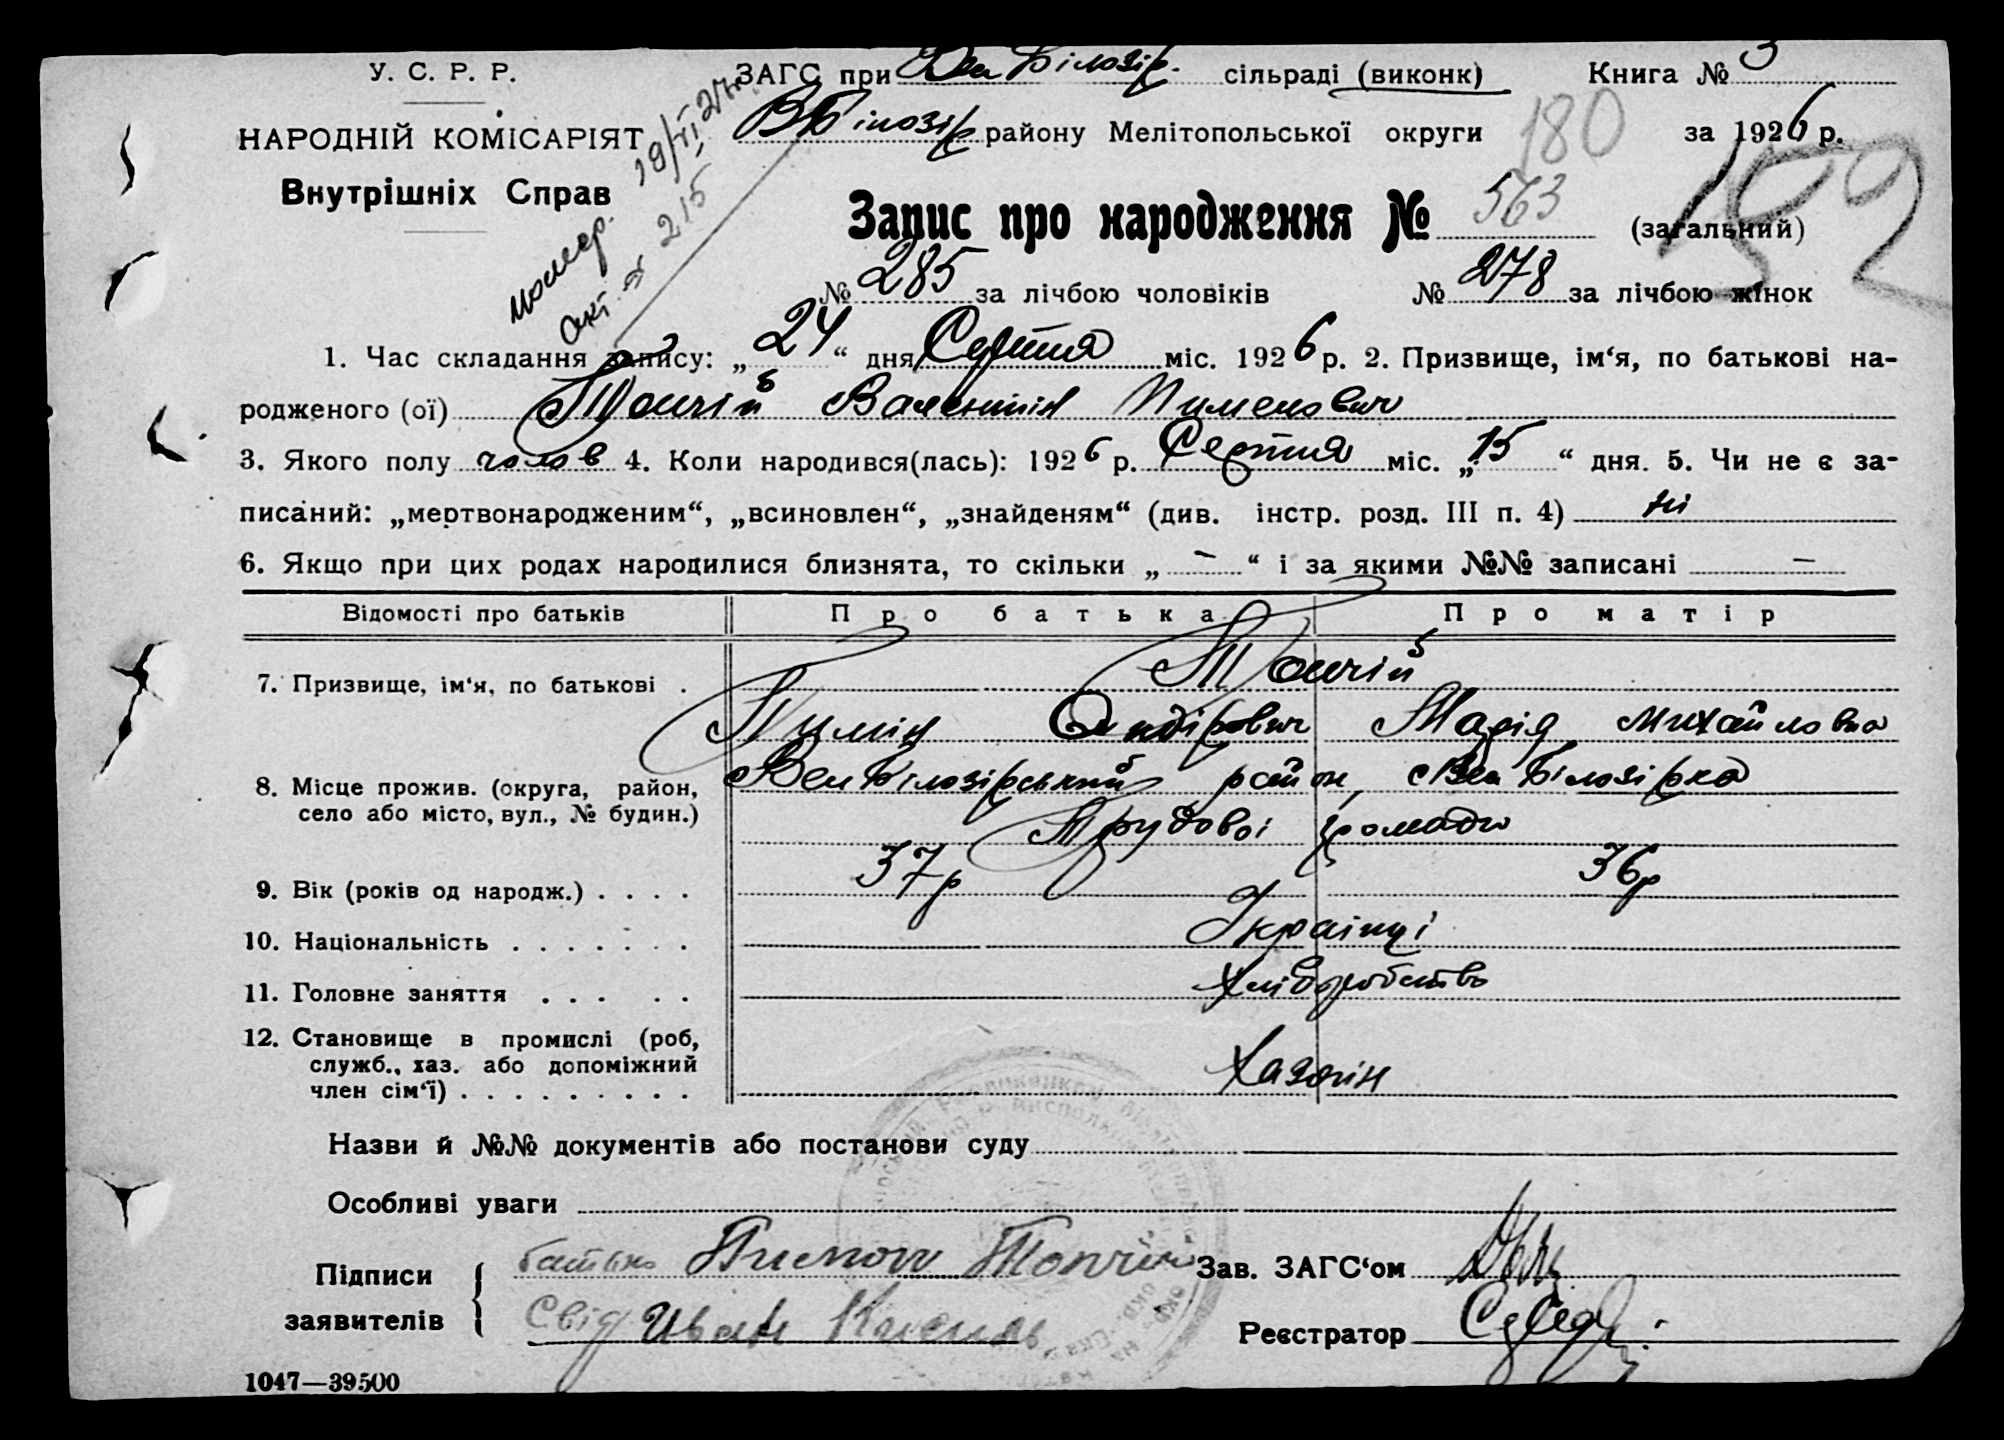 У. С. Р. Р.
ЗАГС при Вел Білозір. сільраді (виконк) Книга № 3
НАРОДНІЙ КОМІСАРІЯТ
ВБілозір району Мелітопольської округи 180 за 1926 р.
192
Внутрішніх Справ
помер. 19/VI 27р.
акт № 215
Запис про народження № 563 (загальний)
№ 285 за лічбою чоловіків № 278 за лічбою жінок
1. Час складання запису: „ 24 “ дня Серпня міс. 1926 р. 2. Призвище, ім‘я, по батькові на-
родженого (ої) Топчій Валентін Пименович
3. Якого полу чолов 4. Коли народився(лась): 1926 р. Серпня міс. „ 15 “ дня. 5. Чи не є за-
писаний: „мертвонародженим“, „всиновлен“, „знайденям“ (див. інстр. розд. III п. 4) ні
6. Якщо при цих родах народилися близнята, то скільки „ - “ і за якими №№ записані -
Відомості про батьків Про батька Про матір
7. Призвище, ім‘я, по батькові . Топчій
Пимін Ондірович Марія Михайловна
8. Місце прожив. (округа, район, ВелБілозірський район, Вел Білозірка
село або місто, вул., № будин.) Трудової громади
9. Вік (років од народж.) . . . . 37р 36р
10. Національність . . . . . . . Українці
11. Головне заняття . . . . . Хліборобство
12. Становище в промислі (роб,
служб., хаз. або допоміжний Хазяін
член сім‘ї) . . . . . . . . .
Назви й №№ документів або постанови суду
Особливі уваги
Підписи батько Пимон Топчій Зав. ЗАГС‘ом
заявителів Свід Иван Кисиль Реєстратор
1047—39500